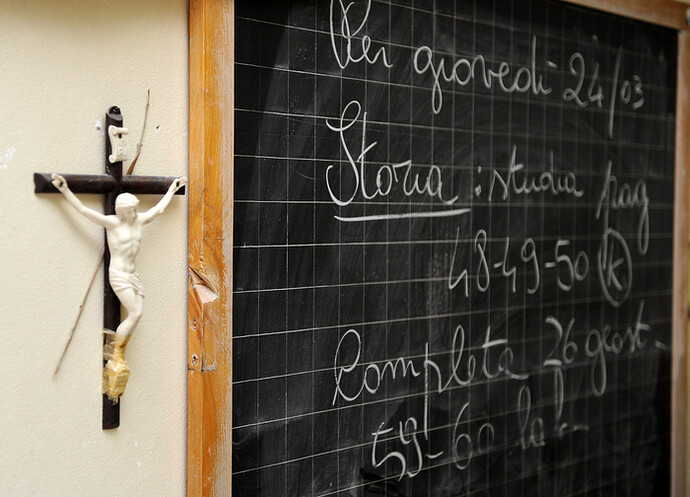 Per giovedì 24/03
Storia : studia pag
48-49-50 (k)
Completa 26 geost.
59-60 lab.